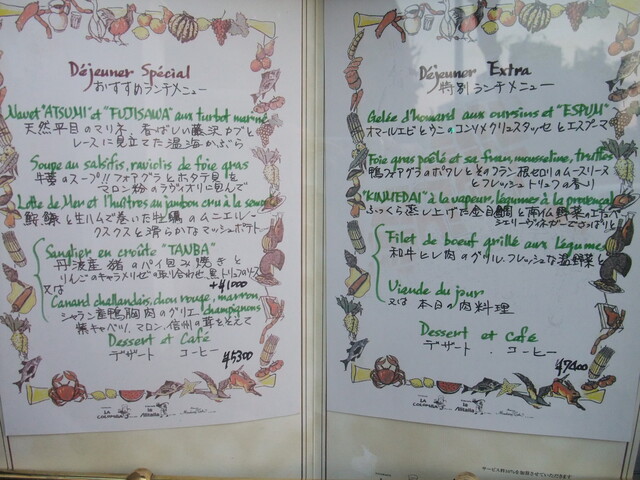 Déjeuner Spécial
おすすめランチメニュー
Navet "ATSUMI" et "FUJISAWA" aux turbot mariné
天然平目のマリネ、香ばしい藤沢カブと
レースに見立てた温海かぶら
Soupe au salsifis, raviolis de foie gras
牛蒡のスープ!! フォアグラとホタテ貝を
マロン粉のラヴィオリに包んで
Lotte de Mer et l'huîtres au jambon cru à la
鮟鱇と生ハムで巻いた牡蠣のムニエル
クスクスと滑らかなマッシュポテト
Sanglier en croûte "TANBA"
丹波産 猪のパイ包み焼きと
りんごのキャラメリゼの取り合わせ、黒トリュフソース
又は +¥1000
Canard challandais, chou rouge, marron
champignons
シャラン産鴨胸肉のグリエ
紫キャベツ、マロン、信州の茸をそえて
Dessert et Café
デザート コーヒー
¥5300
LA COLOMBA
la Mitalia
Déjeuner Extra
特別ランチメニュー
Gelée d'homard aux oursins et "ESPUM"
オマールエビとウニのコンソメクリュスタッセとエスプーマ
Foie gras poêlé et sa fruan, mousseline, truffes
鴨フォアグラのポワレとそのフラン 根セロリのムースリーヌ
とフレッシュトリュフの香り
"KINMEDAI" à la vapeur, légumes à la provençal
ふっくら蒸し上げた金目鯛と南仏野菜の
シェリーヴィネガーでさっぱりと
Filet de boeuf grillé aux légumes
和牛ヒレ肉のグリル、フレッシュな温野菜と
Viande du jour
又は 本日の肉料理
Dessert et café
デザート . コーヒー
¥7400
LA COLOMBA
la Mitalia
サービス料10%を加算させていただきます